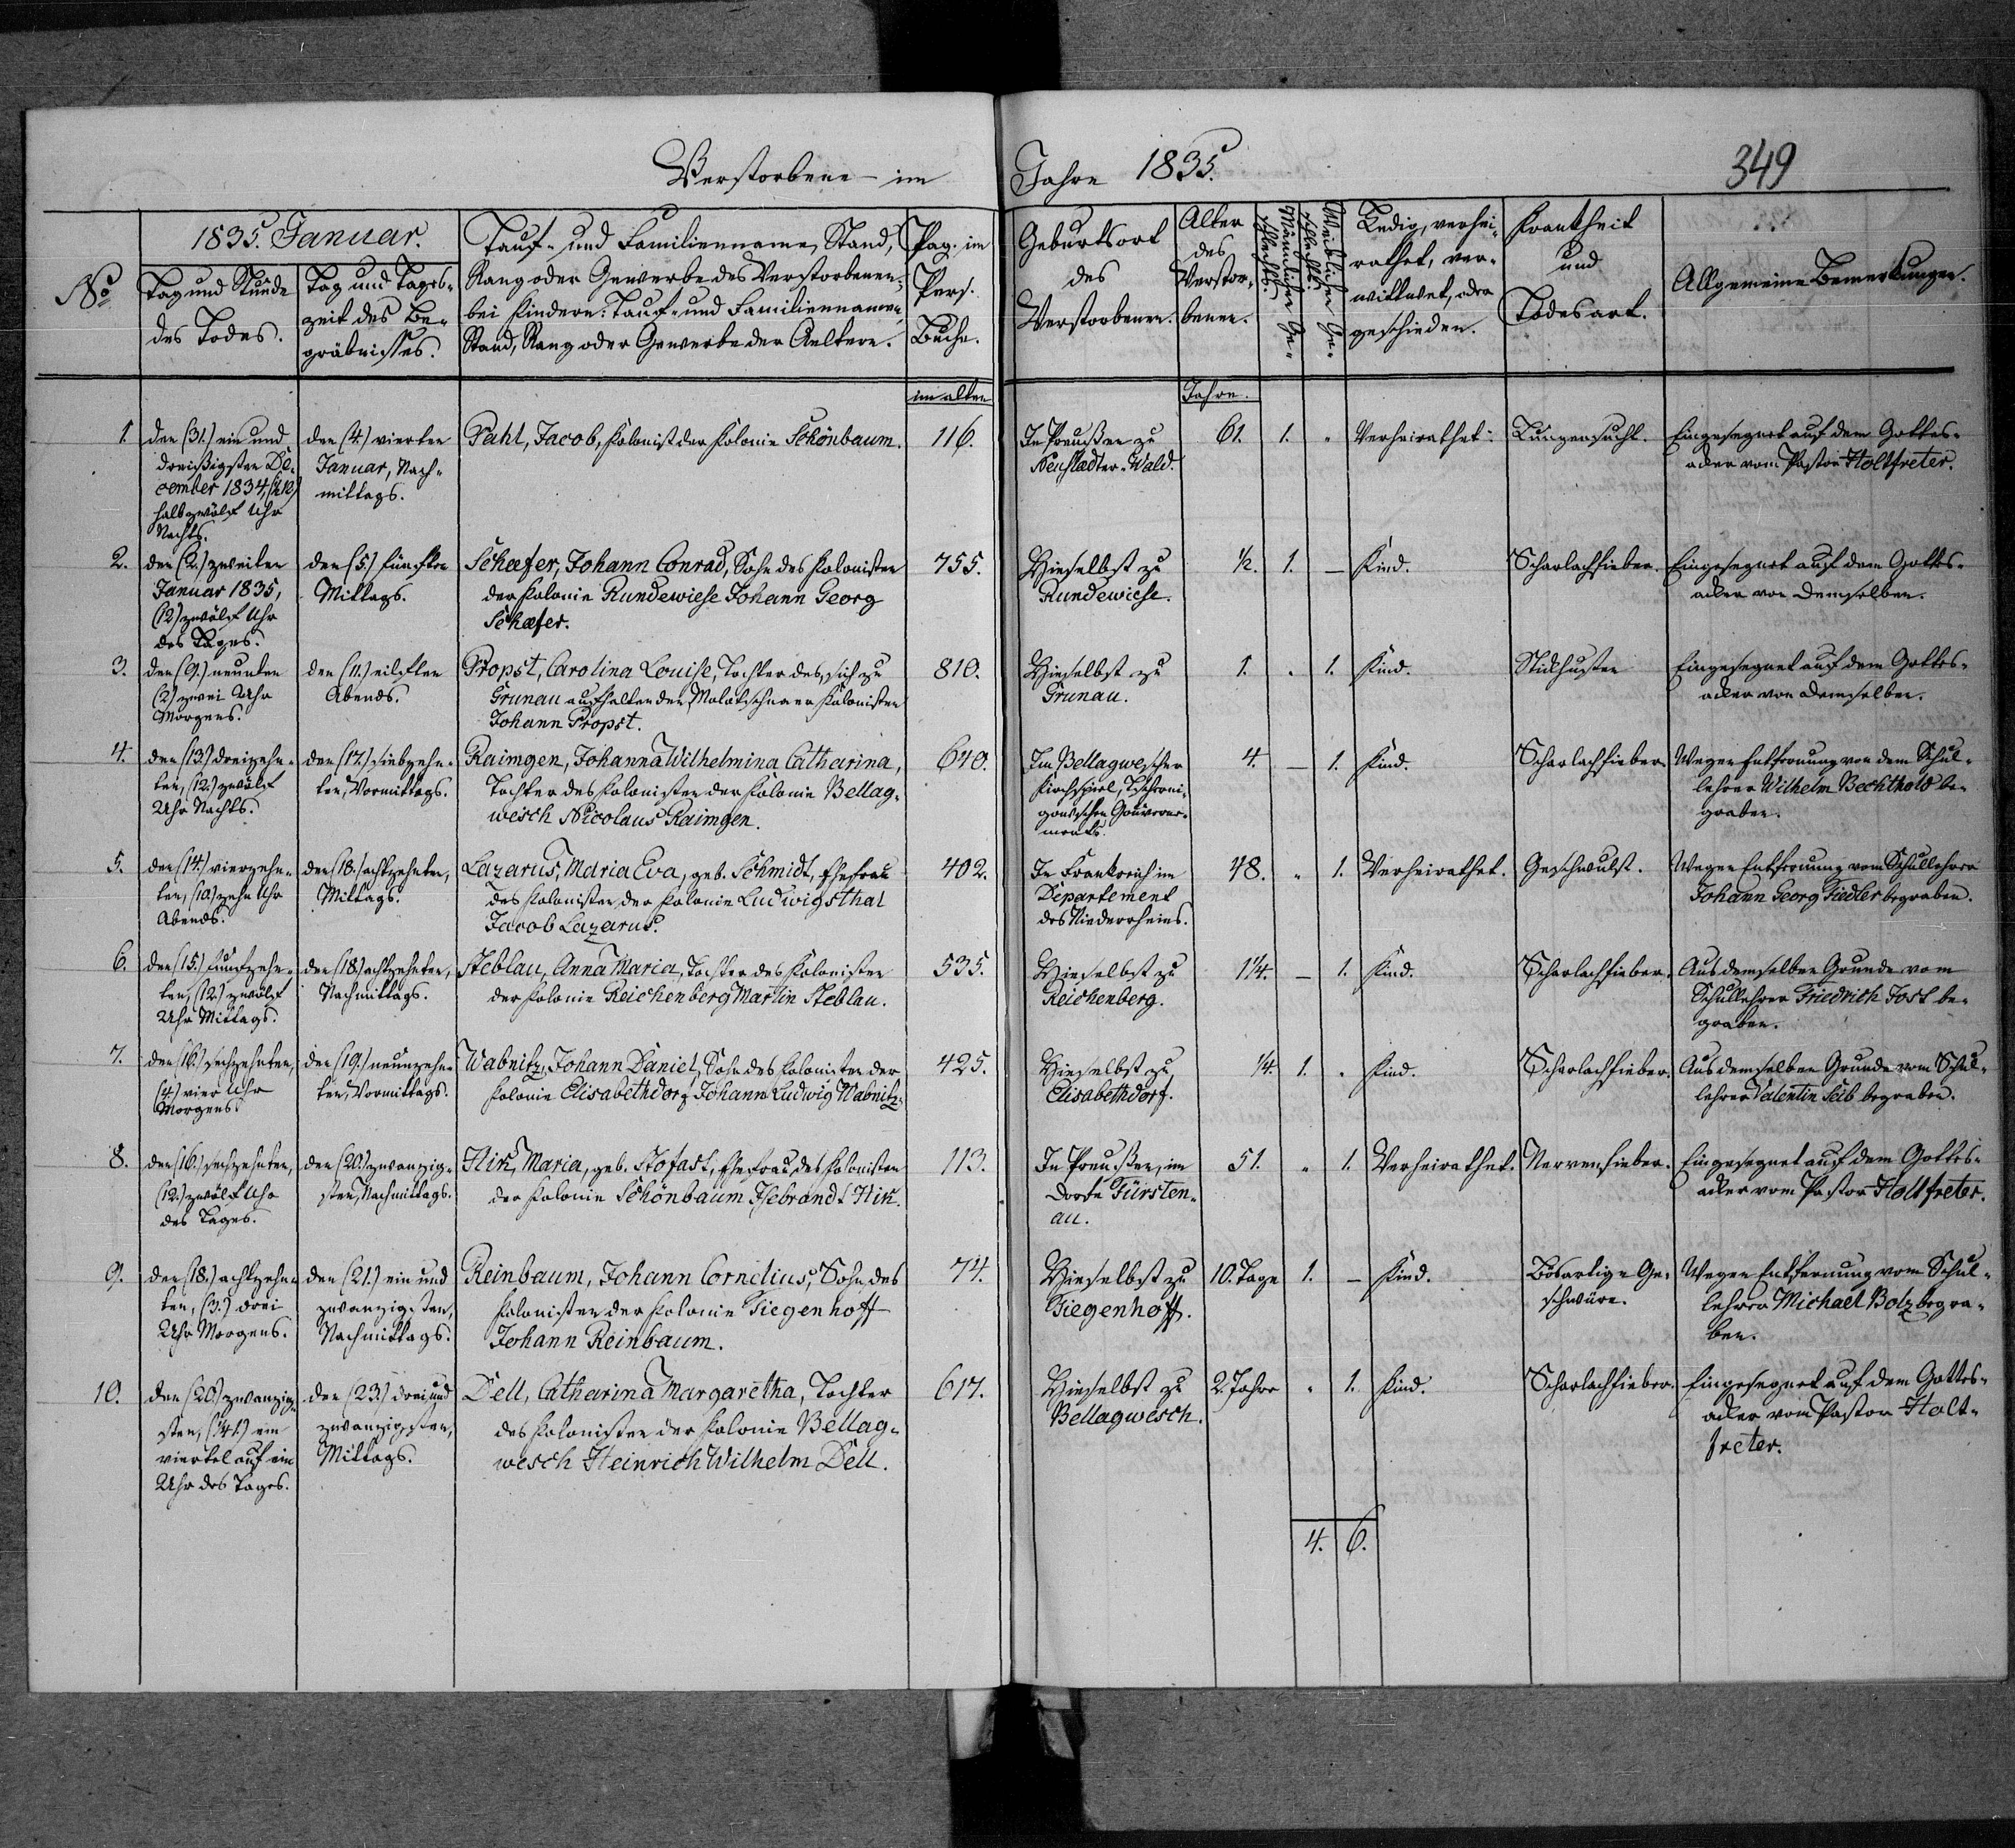 Verstorbene im Jahre 1835.
349
No
1835. Januar.
Tag und Stunde
des Todes.
Tag und Tages-
zeit des Be-
gräbnisses.
Tauf- und Familienname, Stand,
Rang oder Gewerbe des Verstorbenen;
bei Kindern: Tauf- und Familiennamen,
Stand, Rang oder Gewerbe der Aeltern.
Pag. im
Pers.
Buche.
Geburtsort
des
Verstorbenen.
Alter
des
Verstor-
benen.
Männlicher Ge-
schlechts.
Weiblicher Ge-
schlechts.
Ledig, verhei-
rathet, ver-
wittwet, oder
geschieden.
Krankheit
und
Todesart.
Allgemeine Bemerkungen.
im alten
Jahre.
1.
den (31.) ein und
dreißigsten De-
cember 1834, (½12)
halb zwölf Uhr
Nachts.
den (4.) vierten
Januar, Nach-
mittags.
Pahl, Jacob, Kolonist der Kolonie Schönbaum.
116.
In Preußen zu
Neustädter-Wald.
61.
1.
"
Verheirathet.
Lungensucht.
Eingesegnet auf dem Gottes-
acker vom Pastor Holtfreter.
2.
den (2.) zweiten
Januar 1835,
(12) zwölf Uhr
des Tages.
den (5.) fünften
Mittags.
Schæfer, Johann Conrad, Sohn des Kolonisten
der Kolonie Rundewiese Johann Georg
Schæfer.
755.
Hieselbst zu
Rundewiese.
½.
1.
—
Kind.
Scharlachfieber.
Eingesegnet auf dem Gottes-
acker von demselben.
3.
den (9.) neunten
(2) zwei Uhr
Morgens.
den (11.) eilften
Abends.
Propst, Carolina Louise, Tochter des, sich zu
Grunau aufhaltenden, Molotschnaer Kolonisten
Johann Propst.
810.
Hieselbst zu
Grunau.
1.
"
1.
Kind.
Stickhusten
Eingesegnet auf dem Gottes-
acker von demselben.
4.
den (13.) dreizehn-
ten, (12.) zwölf
Uhr Nachts.
den (17.) siebzehn-
ten, Vormittags.
Raimgen, Johanna Wilhelmina Catharina,
Tochter des Kolonisten der Kolonie Bellag-
wesch Nicolaus Raimgen.
640.
Im Bellagweschen
Kirchspiel, Tscherni-
gowschen Gouverne-
ments.
4.
—
1.
Kind.
Scharlachfieber.
Wegen Entfernung von dem Schul-
lehrer Wilhelm Bechthold be-
graben.
5.
den (14.) vierzehn-
ten, (10.) zehn Uhr
Abends.
den (18.) achtzehnten,
Mittags.
Lazarus, Maria Eva, geb. Schmidt, Ehefrau
des Kolonisten der Kolonie Ludwigsthal
Jacob Lazarus.
402.
In Frankreich im
Departement
des Niederrheins.
48.
"
1.
Verheirathet.
Geschwulst.
Wegen Entfernung vom Schullehrer
Johann Georg Fiedler begraben.
6.
den (15.) fünfzehn-
ten, (12.) zwölf
Uhr Mittags.
den (18.) achtzehnten,
Nachmittags.
Steblau, Anna Maria, Tochter des Kolonisten
der Kolonie Reichenberg Martin Steblau.
535.
Hieselbst zu
Reichenberg.
1¼.
—
1.
Kind.
Scharlachfieber.
Aus demselben Grunde vom
Schullehrer Friedrich Jost be-
graben.
7.
den (16.) sechzehnten,
(4.) vier Uhr
Morgens.
den (19.) neunzehn-
ten, Vormittags.
Wabnitz, Johann Daniel, Sohn des Kolonisten der
Kolonie Elisabethdorf Johann Ludwig Wabnitz.
425.
Hieselbst zu
Elisabethdorf.
¼.
1.
"
Kind.
Scharlachfieber.
Aus demselben Grunde vom Schul-
lehrer Valentin Seib begraben.
8.
den (16.) sechzehnten,
(12.) zwölf Uhr
des Tages.
den (20.) zwanzig-
sten, Nachmittags.
Hik, Maria, geb. Stofast, Ehefrau des Kolonisten
der Kolonie Schönbaum Isebrandt Hik.
113.
In Preußen, im
Dorfe Fürsten-
au.
51.
"
1.
Verheirathet.
Nervenfieber.
Eingesegnet auf dem Gottes-
acker vom Pastor Holtfreter.
9.
den (18.) achtzehn-
ten, (3.) drei
Uhr Morgens.
den (21.) ein und
zwanzigsten,
Nachmittags.
Reinbaum, Johann Cornelius, Sohn des
Kolonisten der Kolonie Tiegenhoff
Johann Reinbaum.
74.
Hieselbst zu
Tiegenhoff.
10. Tage
1.
—
Kind.
Bösartige Ge-
schwüre.
Wegen Entfernung vom Schul-
lehrer Michael Bolz begra-
ben.
10.
den (20.) zwanzig-
sten, (¼1.) ein
viertel auf ein
Uhr des Tages.
den (23.) drei und
zwanzigsten,
Mittags.
Dell, Catharina Margaretha, Tochter
des Kolonisten der Kolonie Bellag-
wesch Heinrich Wilhelm Dell.
617.
Hieselbst zu
Bellagwesch.
2. Jahre
"
1.
Kind.
Scharlachfieber.
Eingesegnet auf dem Gottes-
acker vom Pastor Holt-
freter.
4.
6.